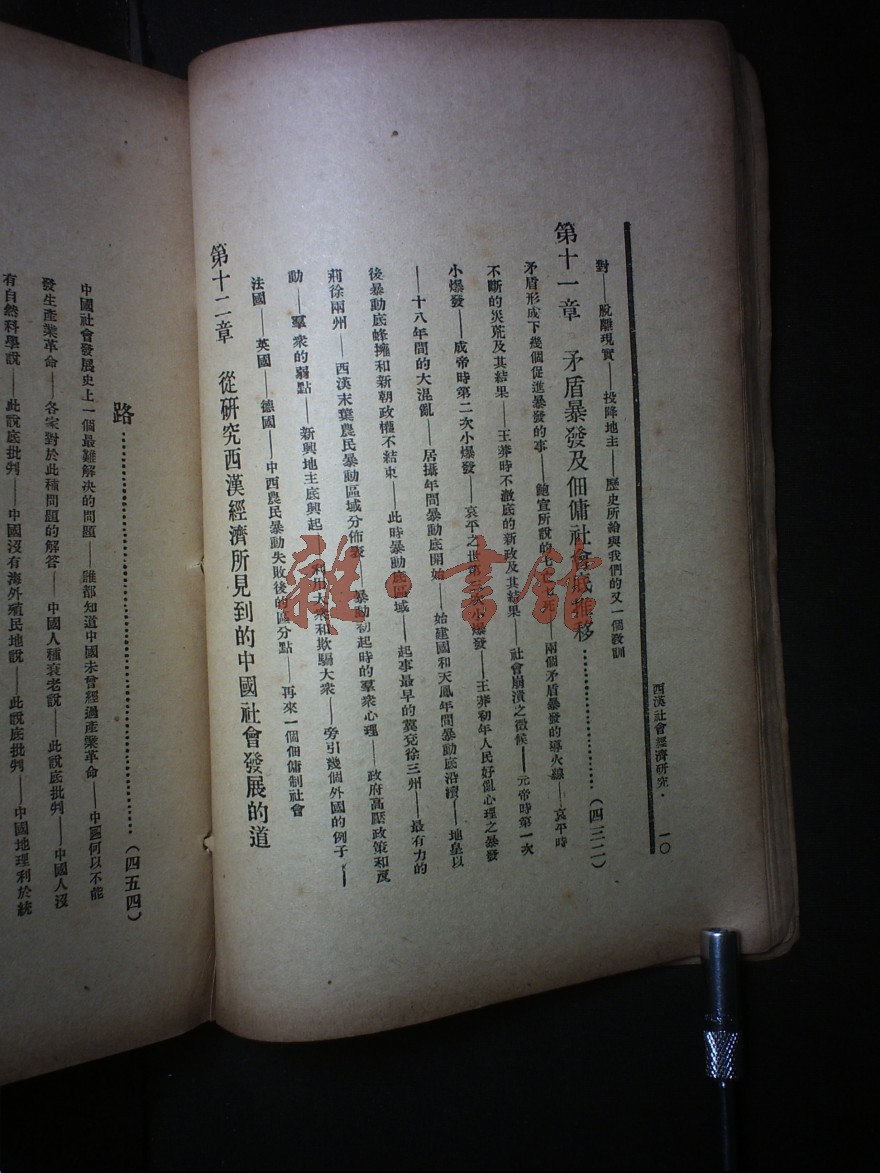 西漢社會經濟研究· 一〇
對——脫離現實——投降地主——歷史所給與我們的又一個教訓
第十一章 矛盾暴發及佃傭社會底推移…………(四三二)
矛盾形成下幾個促進暴發的事——鮑宣所說的七亡七死——兩個矛盾暴發的導火線——哀平時
不斷的災荒及其結果——王莽時不澈底的新政及其結果——社會崩潰之徵候——元帝時第一次
小爆發——成帝時第二次小爆發——哀平之世第三次小爆發——王莽初年人民好亂心理之暴發
——十八年間的大混亂——居攝年間暴動底開始——始建國和天鳳年間暴動底沿續——地皇以
後暴動底蜂擁和新朝政權不結束——此時暴動底區域——起事最早的冀兗徐三州——最有力的
荊徐兩州——西漢末葉農民暴動區域分佈表——暴動初起時的羣衆心理——政府高壓政策和反
動——羣衆的弱點——新興地主底興起——利用大衆和欺騙大衆——旁引幾個外國的例子——
法國——英國——德國——中西農民暴動失敗後的區分點——再來一個佃傭制社會
第十二章 從研究西漢經濟所見到的中國社會發展的道
路…………(四五四)
中國社會發展史上一個最難解決的問題——誰都知道中國未曾經過產業革命——中國何以不能
發生產業革命——各家對於此種問題的解答——中國人種衰老說——此說底批判——中國人沒
有自然科學說——此說底批判——中國沒有海外殖民地說——此說底批判——中國地理利於統
雜·書館